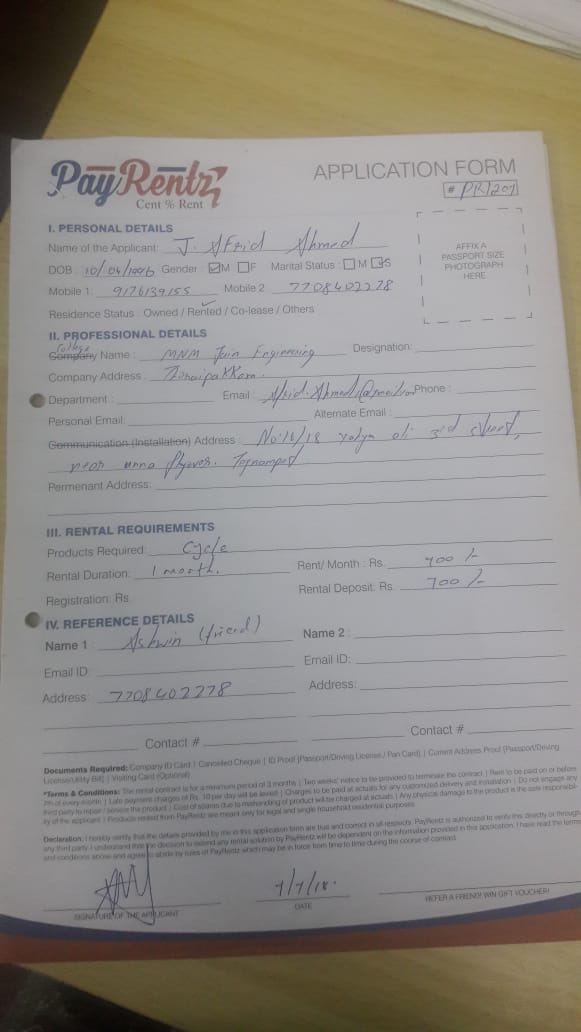 PayRentz
Cent % Rent
APPLICATION FORM
# PR1207
I. PERSONAL DETAILS
Name of the Applicant: J. Afrid Ahmed
DOB : 10/04/1996 Gender ☑M ☐F Marital Status : ☐M ☑S
Mobile 1: 9176139155 Mobile 2 7708402278
AFFIX A
PASSPORT SIZE
PHOTOGRAPH
HERE
Residence Status : Owned / Rented / Co-lease / Others
II. PROFESSIONAL DETAILS
College
Company Name : MNM Jain Engineering Designation:
Company Address : Thoraipakkam.
Department : Email : Phone :
Personal Email: Alternate Email :
Communication (Installation) Address : No:16/18 3rd street,
near anna flyover. Teynampet
Permenant Address:
III. RENTAL REQUIREMENTS
Products Required: Cycle
Rental Duration: 1 month. Rent/ Month : Rs. 400 /-
Registration: Rs. Rental Deposit: Rs. 700 /-
IV. REFERENCE DETAILS
Name 1 : Ashwin (friend) Name 2 :
Email ID: Email ID:
Address: 7708402278 Address:
Contact # Contact #
Documents Required: Company ID Card | Cancelled Cheque | ID Proof (Passport/Driving License / Pan Card) | Current Address Proof (Passport/Driving
License/Utility Bill) | Visiting Card (Optional)
*Terms & Conditions: The rental contract is for a minimum period of 3 months | Two weeks' notice to be provided to terminate the contract | Rent to be paid on or before
7th of every month | Late payment charges of Rs. 10 per day will be levied | Charges to be paid at actuals for any customized delivery and installation | Do not engage any
third party to repair / service the product | Cost of spares due to mishandling of product will be charged at actuals | Any physical damage to the product is the sole responsibil-
ity of the applicant | Products rented from PayRentz are meant only for legal and single household residential purposes
Declaration: I hereby certify that the details provided by me in this application form are true and correct in all respects. PayRentz is authorized to verify this directly or through
any third party. I understand that the decision to extend any rental solution by PayRentz will be dependent on the information provided in this application. I have read the terms
and conditions above and agree to abide by rules of PayRentz which may be in force from time to time during the course of contract.
SIGNATURE OF THE APPLICANT
7/7/18.
DATE
REFER A FRIEND! WIN GIFT VOUCHER!